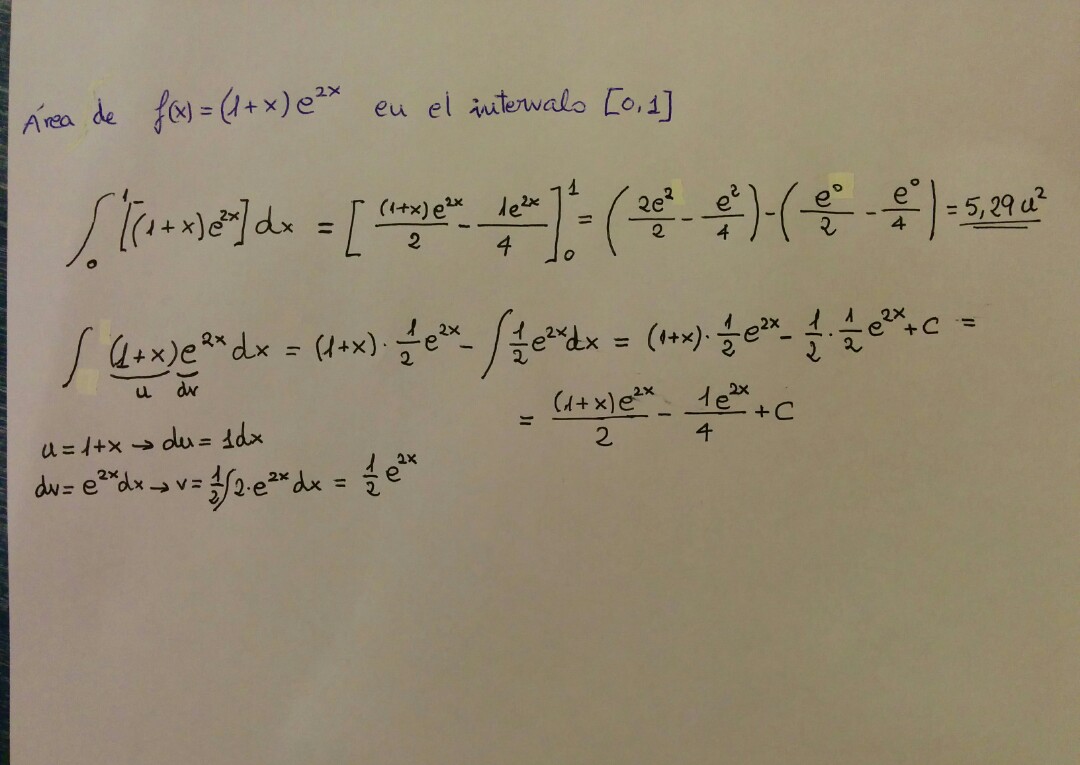 Área de f(x) = (1+x) e^{2x} en el intervalo [0,1]
∫₀¹ [(1+x)e^{2x}] dx = [ (1+x)e^{2x}/2 - 1e^{2x}/4 ]₀¹ = ( 2e²/2 - e²/4 ) - ( e⁰/2 - e⁰/4 ) = 5,29 u²
∫ (1+x)e^{2x} dx = (1+x)·1/2 e^{2x} - ∫ 1/2 e^{2x} dx = (1+x)·1/2 e^{2x} - 1/2·1/2 e^{2x} + C =
u dv
= (1+x)e^{2x}/2 - 1e^{2x}/4 + C
u = 1+x → du = 1dx
dv = e^{2x}dx → v = 1/2 ∫ 2·e^{2x} dx = 1/2 e^{2x}